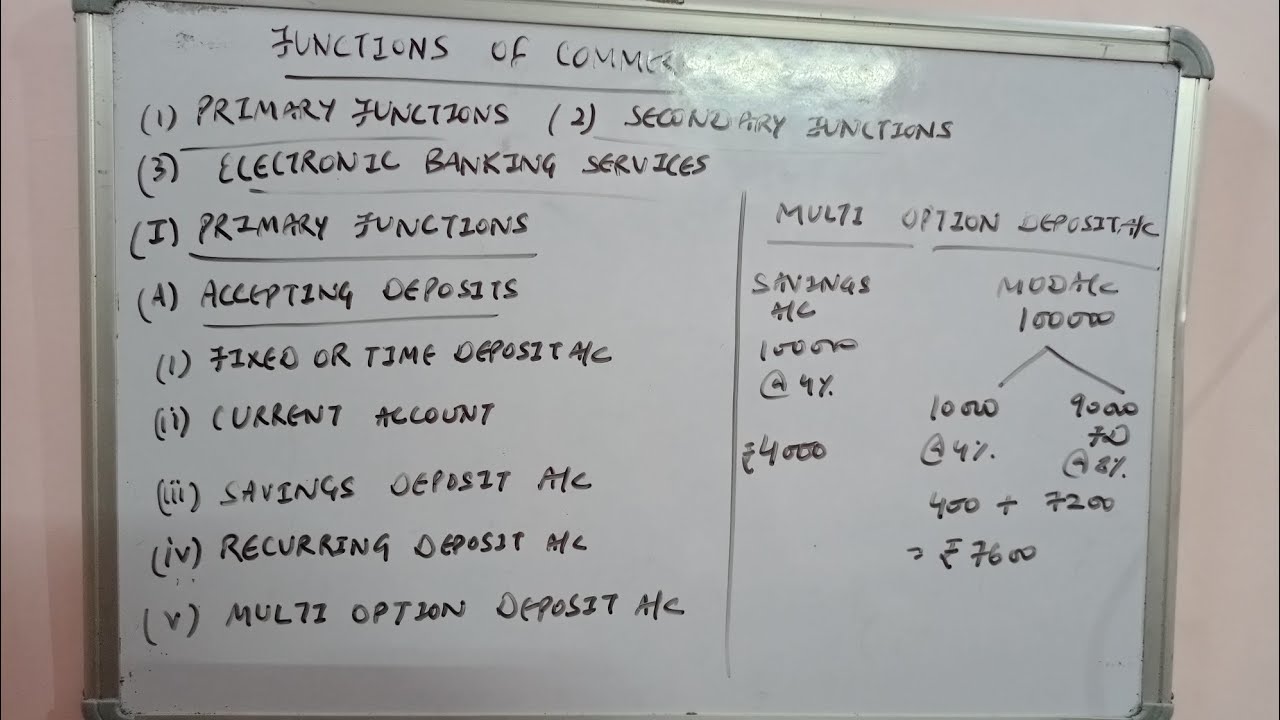 FUNCTIONS OF COMME
(1) PRIMARY FUNCTIONS (2) SECONDARY FUNCTIONS
(3) ELECTRONIC BANKING SERVICES
(I) PRIMARY FUNCTIONS
(A) ACCEPTING DEPOSITS
(i) FIXED OR TIME DEPOSIT A/C
(ii) CURRENT ACCOUNT
(iii) SAVINGS DEPOSIT A/C
(iv) RECURRING DEPOSIT A/C
(v) MULTI OPTION DEPOSIT A/C
MULTI OPTION DEPOSIT A/C
SAVINGS
A/C
100000
@ 4%
₹4000
MOD A/C
100000
10000 90000
FD
@ 4% @ 8%
400 + 7200
= ₹7600